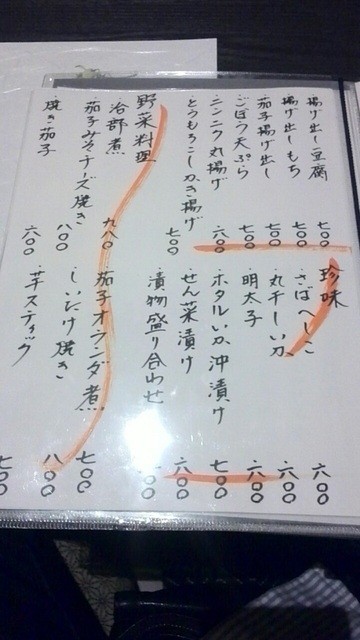 揚げ出し豆腐 七〇〇
揚げ出しもち 七〇〇
茄子揚げ出し 七〇〇
ごぼう天ぷら 七〇〇
ニンニク丸揚げ 六〇〇
とうもろこしかき揚げ 七〇〇
珍味
さばへしこ 六〇〇
丸干しいか 六〇〇
明太子 六〇〇
ホタルいか沖漬け 七〇〇
せん菜漬け 六〇〇
漬物盛り合わせ
野菜料理
治部煮 九八〇
茄子みそチーズ焼き 八〇〇
焼き茄子 六〇〇
茄子オランダ煮 七〇〇
しいたけ焼き 八〇〇
芋スティック 七〇〇